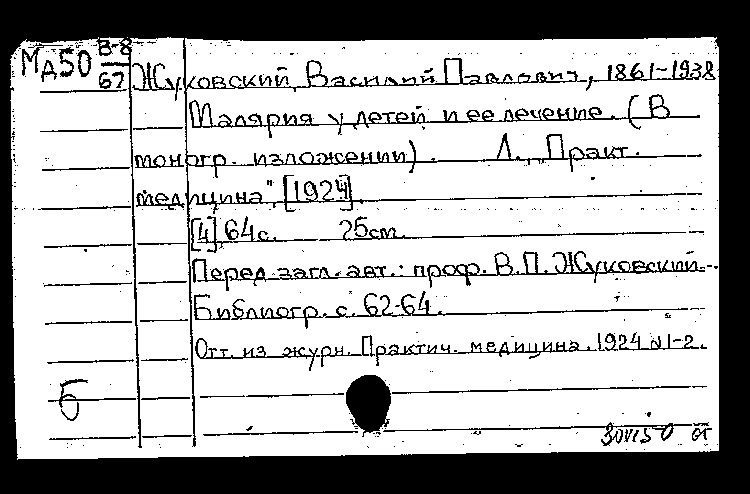 Мд50 В-8/67
Жуковский, Василий Павлович, 1861-1938
Малярия у детей и ее лечение. (В
моногр. изложении). Л., „Практ.
медицина", [1924].
[4], 64 с. 25 см.
Перед загл. авт.: проф. В.П. Жуковский.
Библиогр. с. 62-64.
Отт. из журн. Практич. медицина. 1924 №1-2.
Б